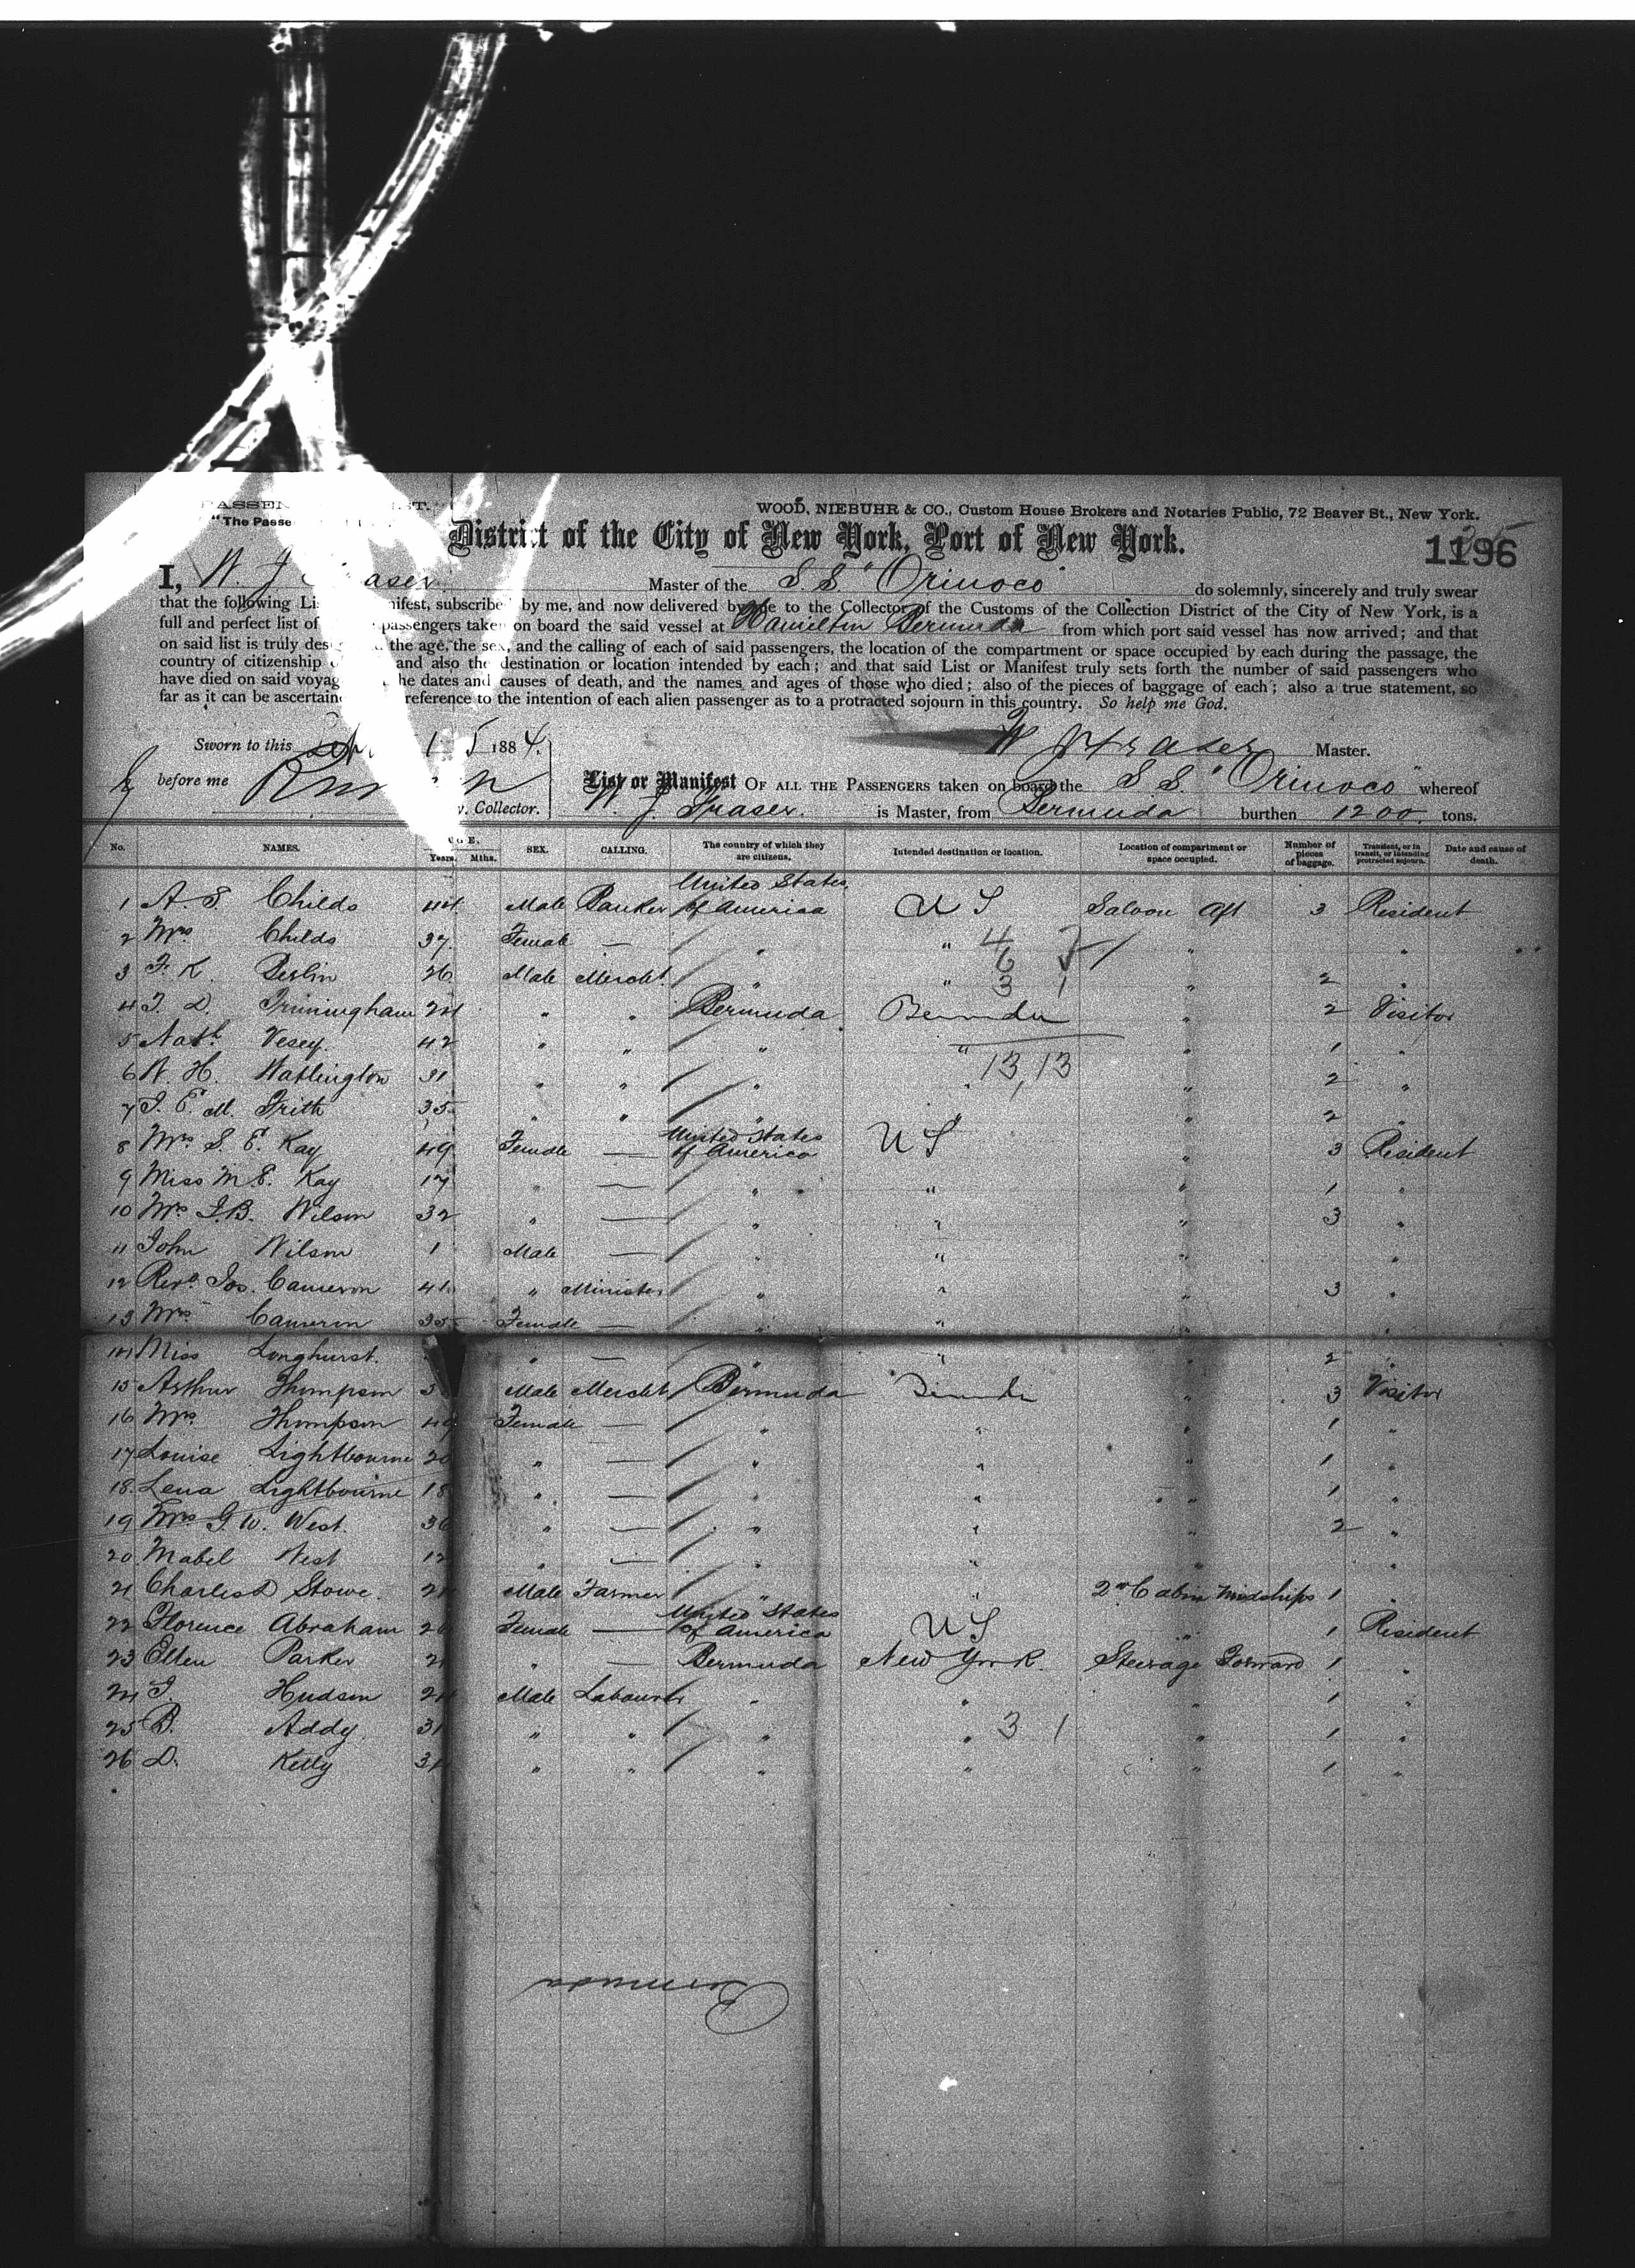 WOOD, NIEBUHR & CO., Custom House Brokers and Notaries Public, 72 Beaver St., New York.
"The Passe
District of the City of New York, Port of New York.
1196
I, W. J. Fraser Master of the S.S. "Orinoco" do solemnly, sincerely and truly swear
that the following Li nifest, subscribe by me, and now delivered by me to the Collector of the Customs of the Collection District of the City of New York, is a
full and perfect list of passengers taken on board the said vessel at Hamilton Bermuda from which port said vessel has now arrived; and that
on said list is truly des the age, the sex, and the calling of each of said passengers, the location of the compartment or space occupied by each during the passage, the
country of citizenship and also the destination or location intended by each; and that said List or Manifest truly sets forth the number of said passengers who
have died on said voyag he dates and causes of death, and the names and ages of those who died; also of the pieces of baggage of each; also a true statement, so
far as it can be ascertain reference to the intention of each alien passenger as to a protracted sojourn in this country. So help me God.
Sworn to this 15 1884. W J Fraser Master.
before me List or Manifest OF ALL THE PASSENGERS taken on board the S.S. "Orinoco" whereof
y. Collector. W. J. Fraser. is Master, from Bermuda burthen 1200 tons.
No. NAMES. Years. Mths. SEX. CALLING. The country of which they are citizens. Intended destination or location. Location of compartment or space occupied. Number of pieces of baggage. Transient, or in transit, or intending protracted sojourn. Date and cause of death.
1 A. S. Childs 44 Male Banker United States of America U S Saloon Aft 3 Resident
2 Mrs Childs 37 Female — " " " "
3 F. K. Male Mercht. " " " 2 "
4 T. D. Trimingham 24 " " Bermuda Bermuda " 2 Visitor
5 Nath. Vesey. 42 " " " " " 1 "
13,13
6 W. H. Watlington 31 " " " " " 2 "
7 J. E. M. Frith 35 " " " " 2 "
8 Mrs S. E. Kay 49 Female — United States of America U S " 3 Resident
9 Miss M. E. Kay 17 " — " " " 1 "
10 Mrs J. B. Wilson 32 " — " " " 3 "
11 John Wilson 1 Male — " " " "
12 Revd. Jos. Cameron " Minister " " " 3 "
13 Mrs Cameron 35 Female — " " " "
14 Miss Longhurst. " — " " " 2 "
15 Arthur Thompson Male Mercht Bermuda Bermuda " 3 Visitor
16 Mrs Thompson Female — " " " 1 "
17 Louise Lightbourne 20 " — " " " 1 "
18 Lena Lightbourne 18 " — " " " 1 "
19 Mrs G. W. West. 36 " — " " " 2 "
20 Mabel West 12 " — " " " "
21 Charles D Stowe. Male Farmer " " 2nd Cabin Midships 1 "
22 Florence Abraham Female — United States of America U S " 1 Resident
23 Ellen Parker Female — Bermuda New York. Steerage Forward 1 "
24 J. Hudson Male Labourer " " " 1 "
25 B. Addy 31 " " " " 3 1 " 1 "
26 D. Kelly " " " " " 1 "
Bermuda